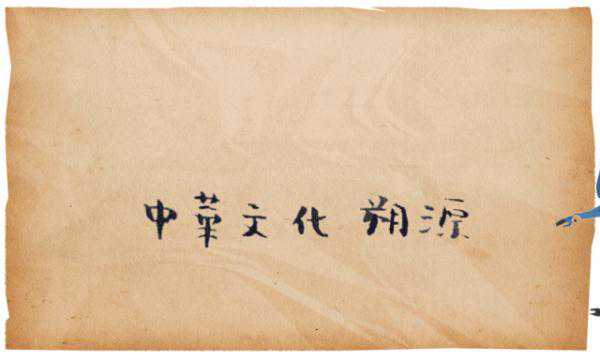 中華文化 朔源